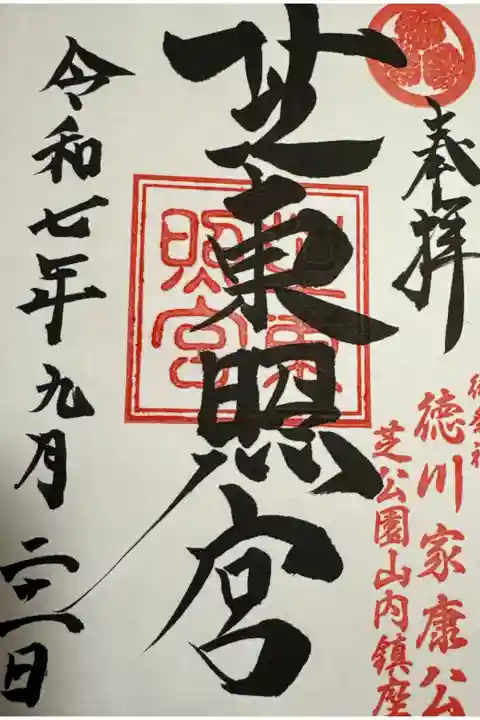 奉拝
御祭神
徳川家康公
芝公園山内鎮座
芝東照宮
芝東照宮
令和七年九月二十一日